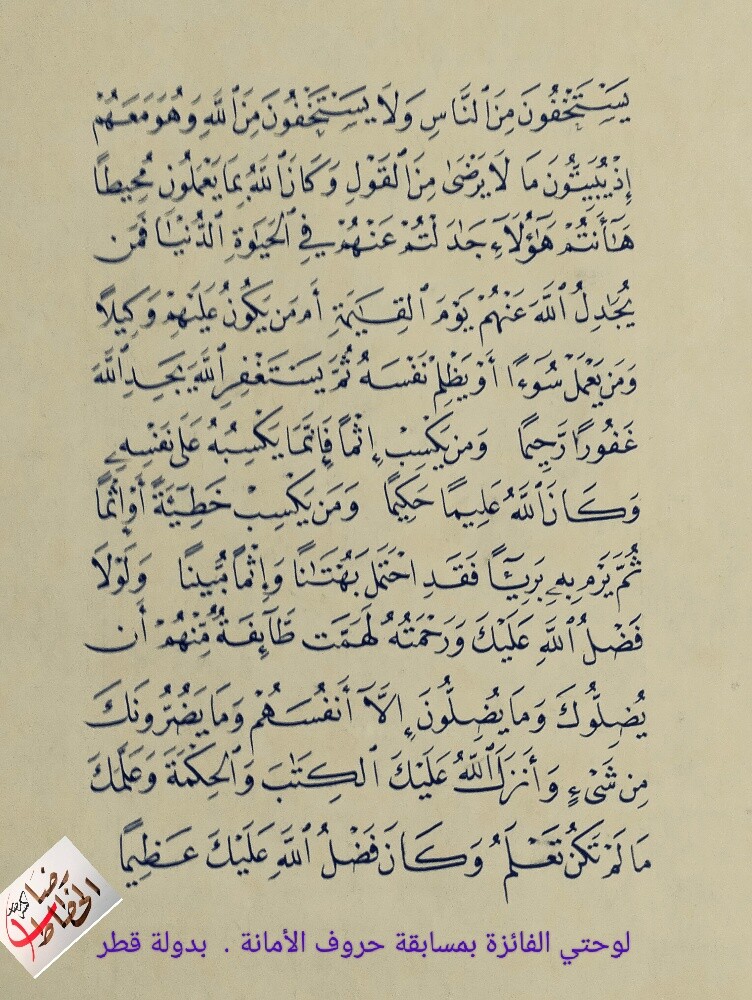 يَسْتَخْفُونَ مِنَ ٱلنَّاسِ وَلَا يَسْتَخْفُونَ مِنَ ٱللَّهِ وَهُوَ مَعَهُمْ
إِذْ يُبَيِّتُونَ مَا لَا يَرْضَىٰ مِنَ ٱلْقَوْلِ وَكَانَ ٱللَّهُ بِمَا يَعْمَلُونَ مُحِيطًا
هَٰٓأَنتُمْ هَٰٓؤُلَآءِ جَٰدَلْتُمْ عَنْهُمْ فِي ٱلْحَيَوٰةِ ٱلدُّنْيَا فَمَن
يُجَٰدِلُ ٱللَّهَ عَنْهُمْ يَوْمَ ٱلْقِيَٰمَةِ أَم مَّن يَكُونُ عَلَيْهِمْ وَكِيلًا
وَمَن يَعْمَلْ سُوٓءًا أَوْ يَظْلِمْ نَفْسَهُ ثُمَّ يَسْتَغْفِرِ ٱللَّهَ يَجِدِ ٱللَّهَ
غَفُورًا رَّحِيمًا وَمَن يَكْسِبْ إِثْمًا فَإِنَّمَا يَكْسِبُهُ عَلَىٰ نَفْسِهِۦ
وَكَانَ ٱللَّهُ عَلِيمًا حَكِيمًا وَمَن يَكْسِبْ خَطِيٓـَٔةً أَوْ إِثْمًا
ثُمَّ يَرْمِ بِهِۦ بَرِيٓـًٔا فَقَدِ ٱحْتَمَلَ بُهْتَٰنًا وَإِثْمًا مُّبِينًا وَلَوْلَا
فَضْلُ ٱللَّهِ عَلَيْكَ وَرَحْمَتُهُ لَهَمَّت طَّآئِفَةٌ مِّنْهُمْ أَن
يُضِلُّوكَ وَمَا يُضِلُّونَ إِلَّآ أَنفُسَهُمْ وَمَا يَضُرُّونَكَ
مِن شَيْءٍ وَأَنزَلَ ٱللَّهُ عَلَيْكَ ٱلْكِتَٰبَ وَٱلْحِكْمَةَ وَعَلَّمَكَ
مَا لَمْ تَكُن تَعْلَمُ وَكَانَ فَضْلُ ٱللَّهِ عَلَيْكَ عَظِيمًا
رضا
الخطاط
لوحتي الفائزة بمسابقة حروف الأمانة . بدولة قطر